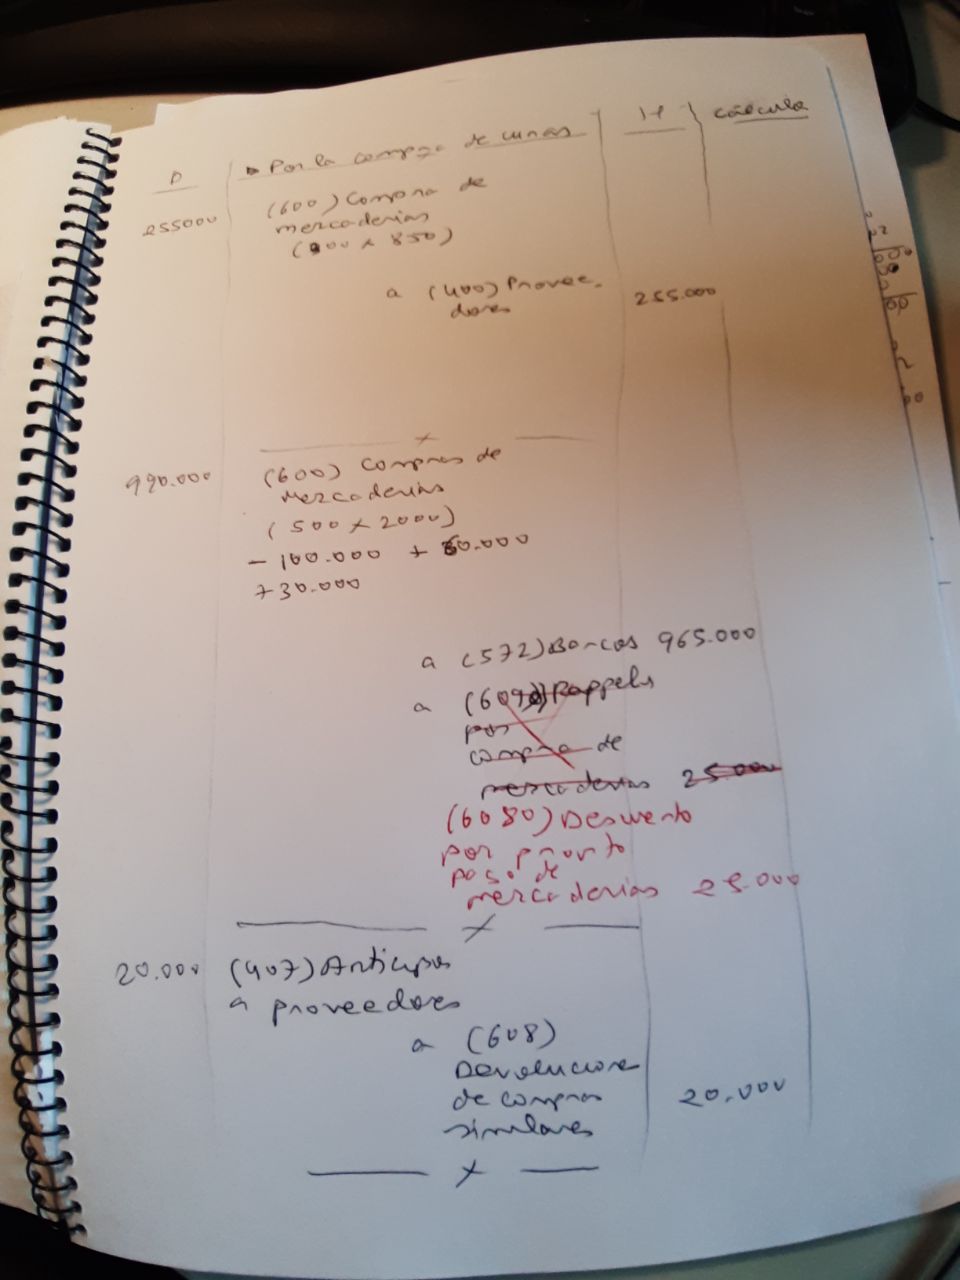 D
▷ Por la compra de cunas
H
cálculo
255000
(600) Compra de
mercaderías
(300 x 850)
a (400) Provee-
dores
255.000
x
990.000
(600) Compras de
mercaderías
(500 x 2000)
- 100.000 + 60.000
+ 30.000
a (572) Bancos 965.000
a (6090) Rappels
por
compra de
mercaderías 25000
(6080) Descuento
por pronto
pago de
mercaderías 25.000
x
20.000 (407) Anticipos
a proveedores
a (608)
Devoluciones
de compras
similares
20.000
x